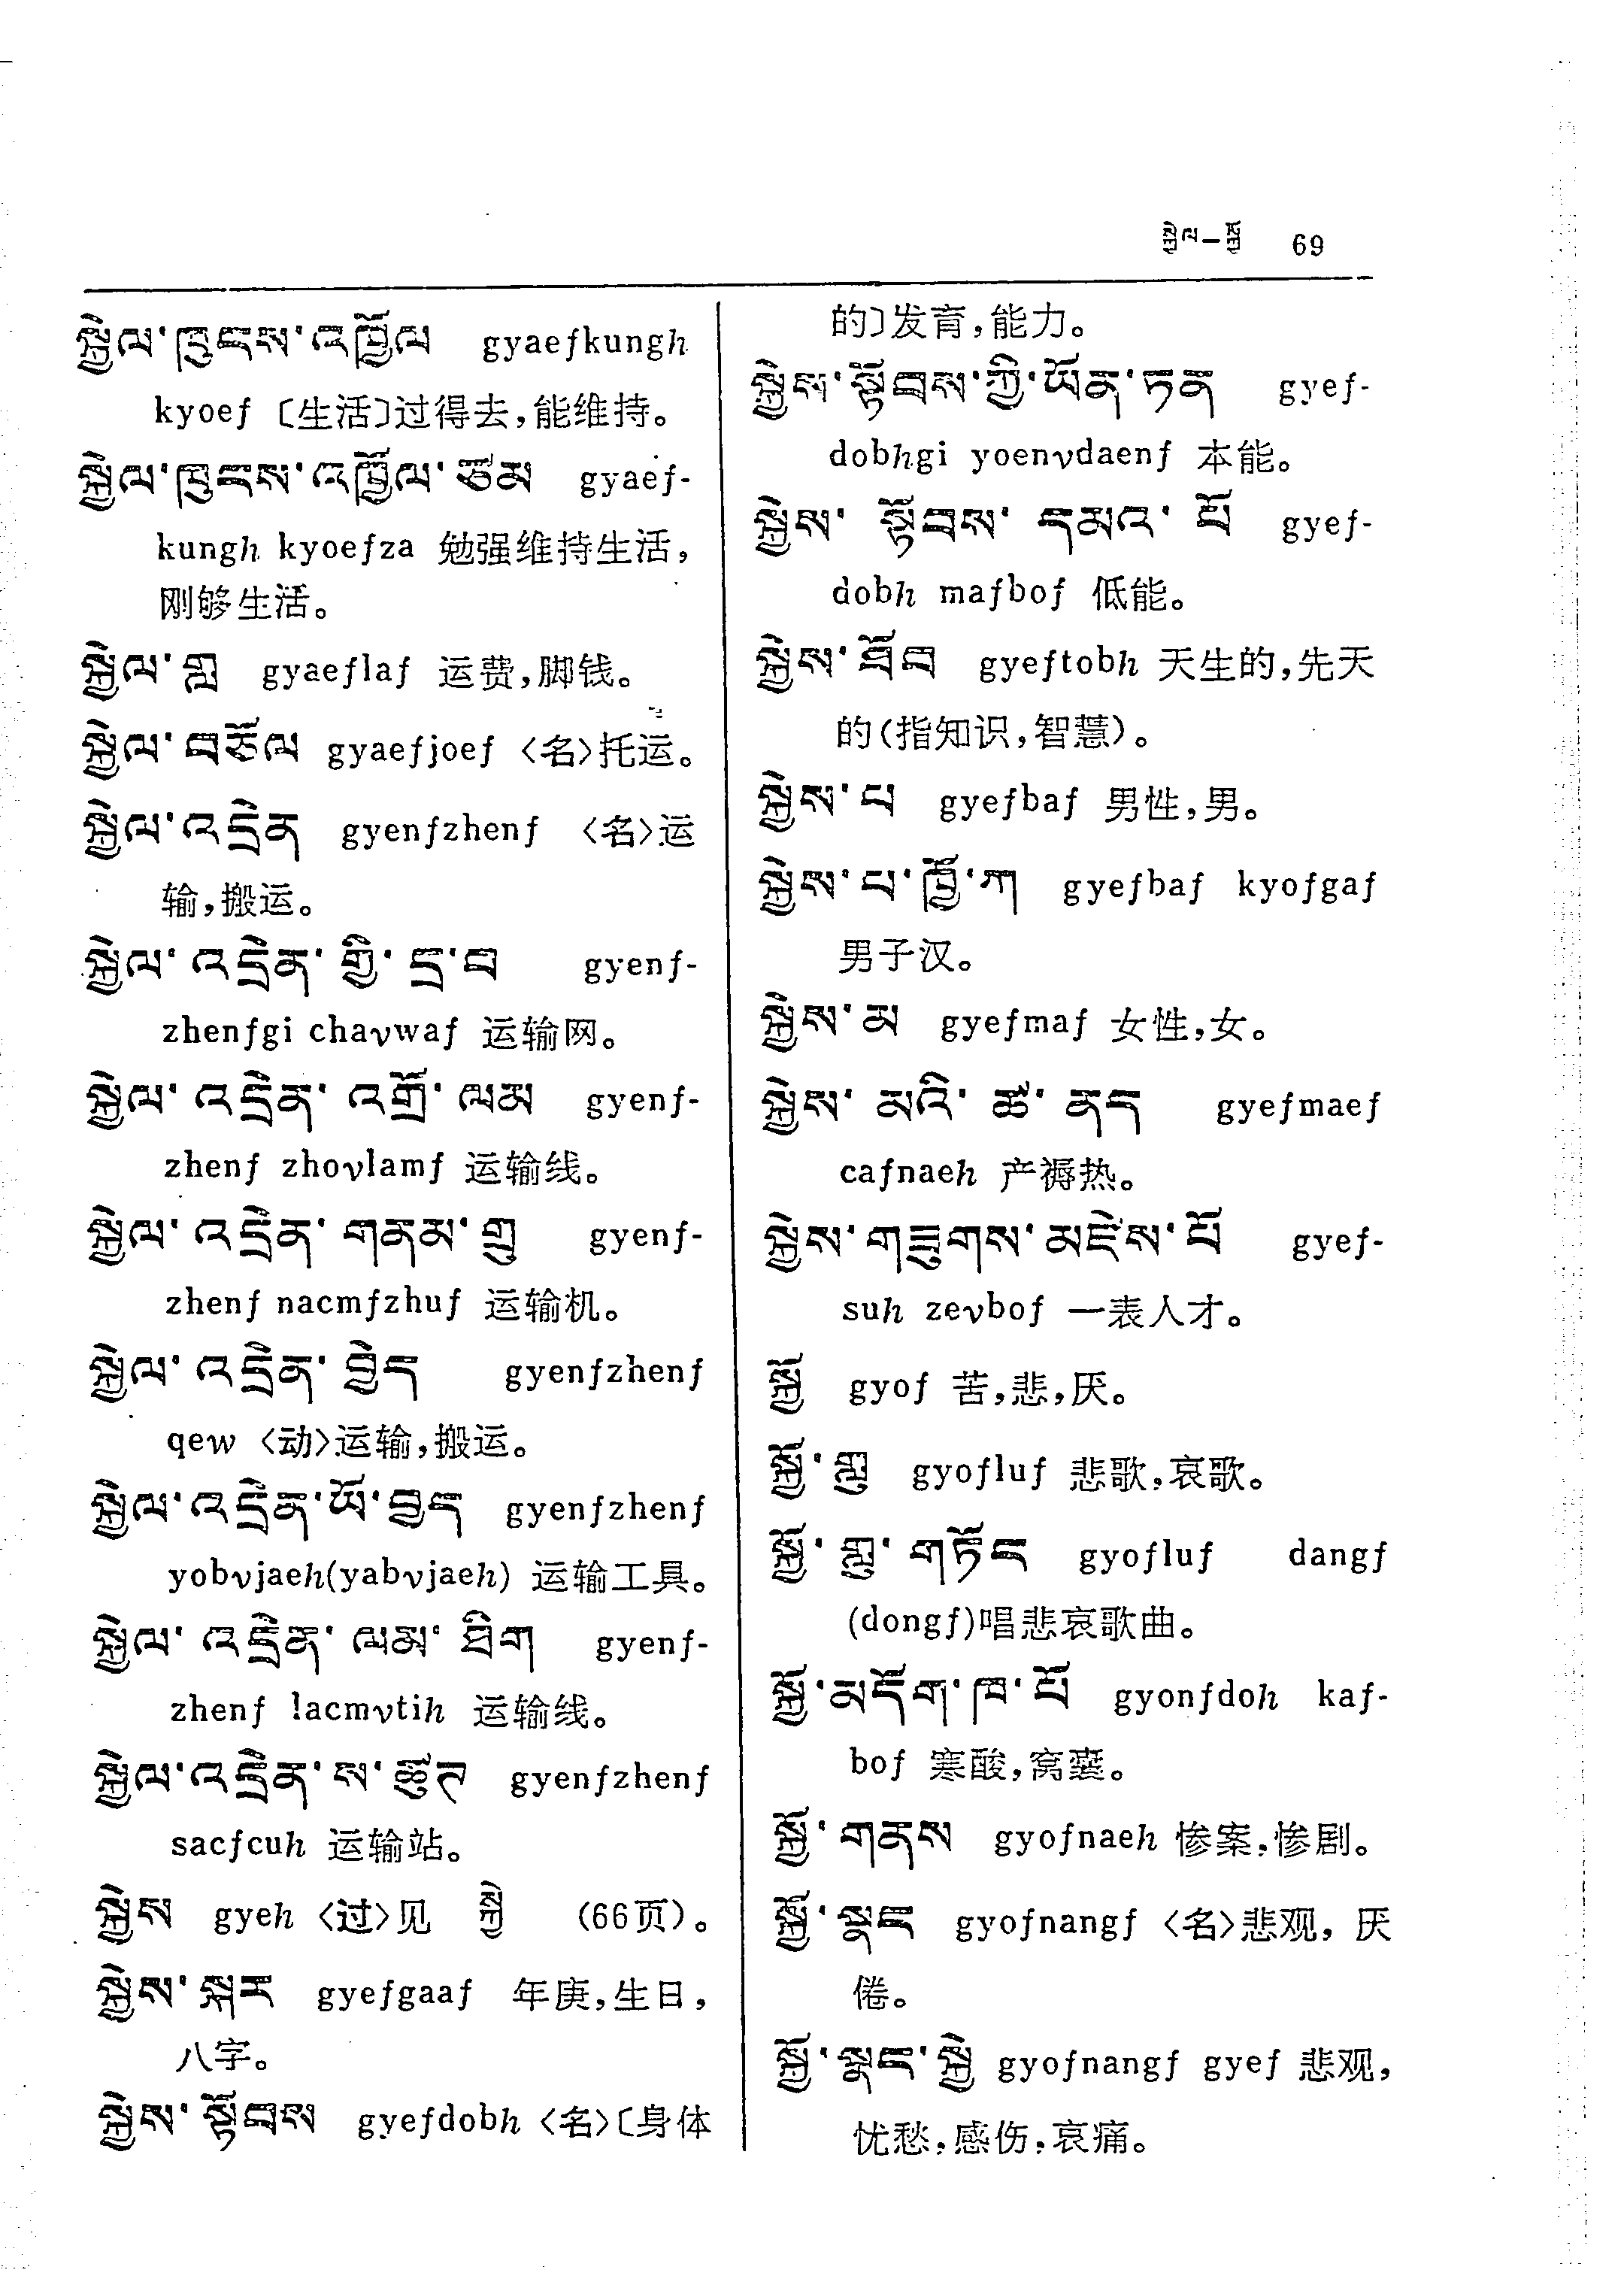 སྐྱེལ—སྐྱོ 69
སྐྱེལ་ཁུངས་འཁྱོལ gyaeƒkungh
kyoeƒ 〔生活〕过得去，能维持。
སྐྱེལ་ཁུངས་འཁྱོལ་ཙམ gyaeƒ-
kungh kyoeƒza 勉强维持生活，
刚够生活。
སྐྱེལ་གླ gyaeƒlaƒ 运费，脚钱。
སྐྱེལ་བཅོལ gyaeƒjoeƒ 〈名〉托运。
སྐྱེལ་འདྲེན gyenƒzhenƒ 〈名〉运
输，搬运。
སྐྱེལ་འདྲེན་གྱི་དྲ་བ gyenƒ-
zhenƒgi chaνwaƒ 运输网。
སྐྱེལ་འདྲེན་འགྲོ་ལམ gyenƒ-
zhenƒ zhoνlamƒ 运输线。
སྐྱེལ་འདྲེན་གནམ་གྲུ gyenƒ-
zhenƒ nacmƒzhuƒ 运输机。
སྐྱེལ་འདྲེན་བྱེད gyenƒzhenƒ
qew 〈动〉运输，搬运。
སྐྱེལ་འདྲེན་ཡོ་བྱད gyenƒzhenƒ
yobνjaeh(yabνjaeh) 运输工具。
སྐྱེལ་འདྲེན་ལམ་ཐིག gyenƒ-
zhenƒ lacmνtih 运输线。
སྐྱེལ་འདྲེན་ས་ཚུགས gyenƒzhenƒ
sacƒcuh 运输站。
སྐྱེས gyeh 〈过〉见 སྐྱེ (66页)。
སྐྱེས་སྐར gyeƒgaaƒ 年庚，生日，
八字。
སྐྱེས་སྟོབས gyeƒdobh 〈名〉〔身体
的〕发育，能力。
སྐྱེས་སྟོབས་ཀྱི་ཡོན་ཏན gyeƒ-
dobhgi yoenνdaenƒ 本能。
སྐྱེས་སྟོབས་དམའ་པོ gyeƒ-
dobh maƒboƒ 低能。
སྐྱེས་ཐོབ gyeƒtobh 天生的，先天
的(指知识，智慧)。
སྐྱེས་པ gyeƒbaƒ 男性，男。
སྐྱེས་པ་ཁྱོ་ག gyeƒbaƒ kyoƒgaƒ
男子汉。
སྐྱེས་མ gyeƒmaƒ 女性，女。
སྐྱེས་མའི་ཚ་ནད gyeƒmaeƒ
caƒnaeh 产褥热。
སྐྱེས་གཟུགས་མཛེས་པོ gyeƒ-
suh zeνboƒ 一表人才。
སྐྱོ gyoƒ 苦，悲，厌。
སྐྱོ་གླུ gyoƒluƒ 悲歌，哀歌。
སྐྱོ་གླུ་གཏོང gyoƒluƒ dangƒ
(dongƒ)唱悲哀歌曲。
སྐྱོ་མདོག་ཁ་པོ gyonƒdoh kaƒ-
boƒ 寒酸，窝囊。
སྐྱོ་གནས gyoƒnaeh 惨案，惨剧。
སྐྱོ་སྣང gyoƒnangƒ 〈名〉悲观，厌
倦。
སྐྱོ་སྣང་སྐྱེ gyoƒnangƒ gyeƒ 悲观，
忧愁，感伤，哀痛。